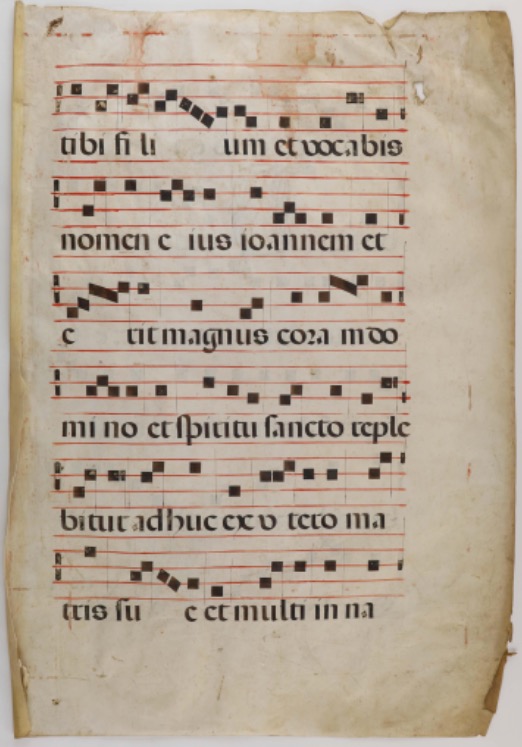 tibi fi li um et vocabis
nomen e ius ioannem et
e rit magnus cora m do
mi no et spiritu sancto reple
bitur adhuc ex v tero ma
tris su e et multi in na